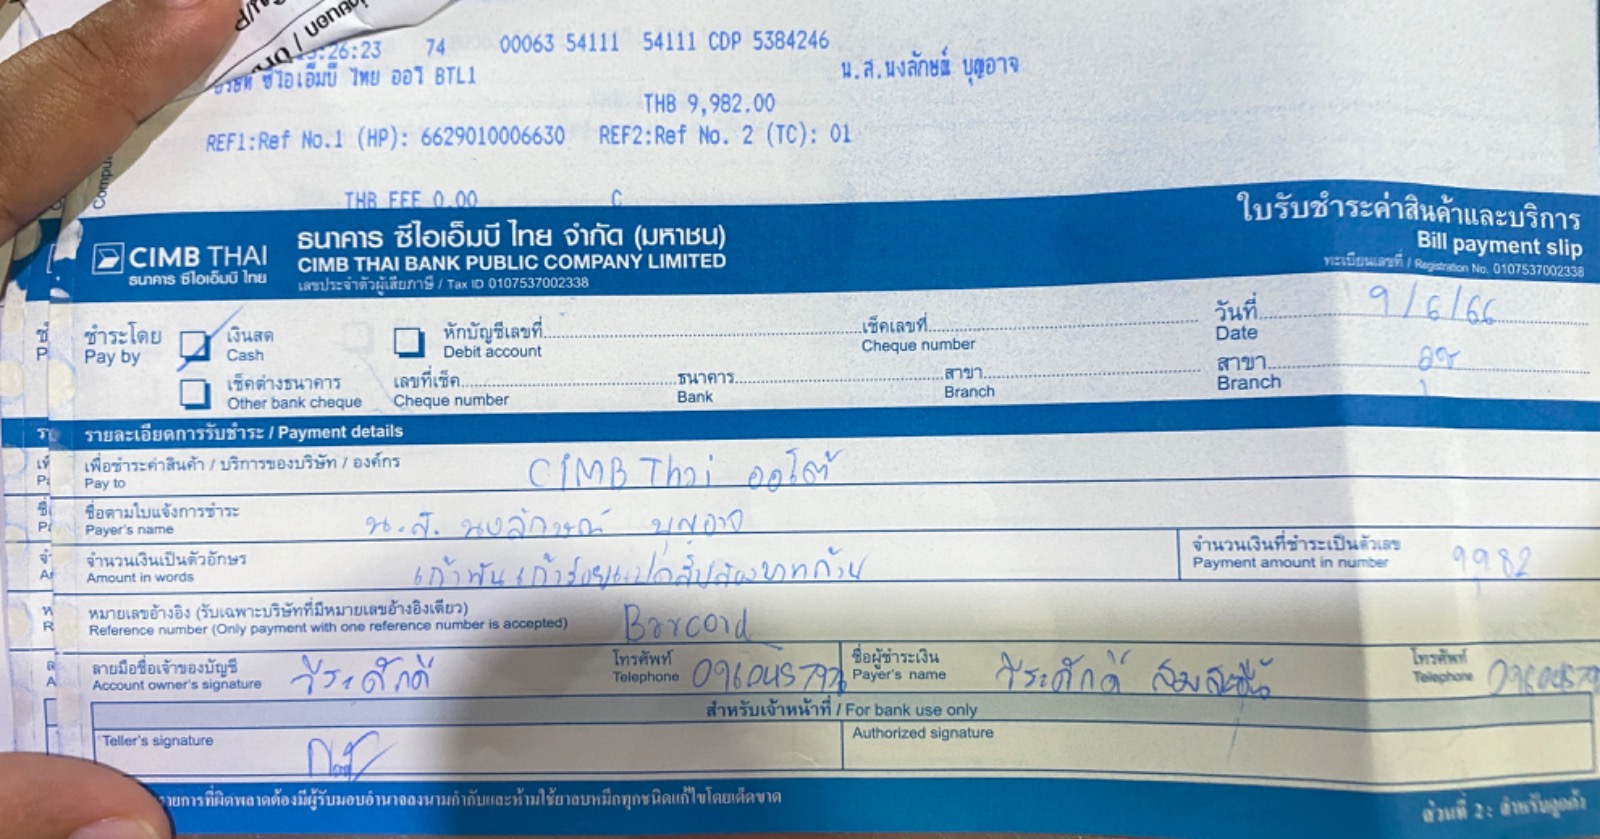 :26:23 74 00063 54111 54111 CDP 5384246
บริษัท ซีไอเอ็มบี ไทย ออโ BTL1 น.ส.นงลักษณ์ บุญอาจ
THB 9,982.00
REF1:Ref No.1 (HP): 6629010006630 REF2:Ref No. 2 (TC): 01
THB FEE 0.00 C
CIMB THAI
ธนาคาร ซีไอเอ็มบี ไทย
ธนาคาร ซีไอเอ็มบี ไทย จำกัด (มหาชน)
CIMB THAI BANK PUBLIC COMPANY LIMITED
เลขประจำตัวผู้เสียภาษี / Tax ID 0107537002338
ใบรับชำระค่าสินค้าและบริการ
Bill payment slip
ทะเบียนเลขที่ / Registration No. 0107537002338
ชำระโดย เงินสด หักบัญชีเลขที่ เช็คเลขที่ วันที่ 9/6/66
Pay by Cash Debit account Cheque number Date
เช็คต่างธนาคาร เลขที่เช็ค ธนาคาร สาขา สาขา
Other bank cheque Cheque number Bank Branch Branch
รายละเอียดการรับชำระ / Payment details
เพื่อชำระค่าสินค้า / บริการของบริษัท / องค์กร CIMB Thai ออโต้
Pay to
ชื่อตามใบแจ้งการชำระ น.ส. นงลักษณ์ บุญอาจ
Payer's name
จำนวนเงินเป็นตัวอักษร เก้าพันเก้าร้อยแปดสิบสองบาทถ้วน จำนวนเงินที่ชำระเป็นตัวเลข 9,982
Amount in words Payment amount in number
หมายเลขอ้างอิง (รับเฉพาะบริษัทที่มีหมายเลขอ้างอิงเดียว) Barcord
Reference number (Only payment with one reference number is accepted)
ลายมือชื่อเจ้าของบัญชี วีระศักดิ์ โทรศัพท์ ชื่อผู้ชำระเงิน วีระศักดิ์ โทรศัพท์
Account owner's signature Telephone Payer's name Telephone
สำหรับเจ้าหน้าที่ / For bank use only
Teller's signature Authorized signature
รายการที่ผิดพลาดต้องมีผู้รับมอบอำนาจลงนามกำกับและห้ามใช้ยาลบหมึกทุกชนิดแก้ไขโดยเด็ดขาด
ส่วนที่ 2 : สำหรับลูกค้า